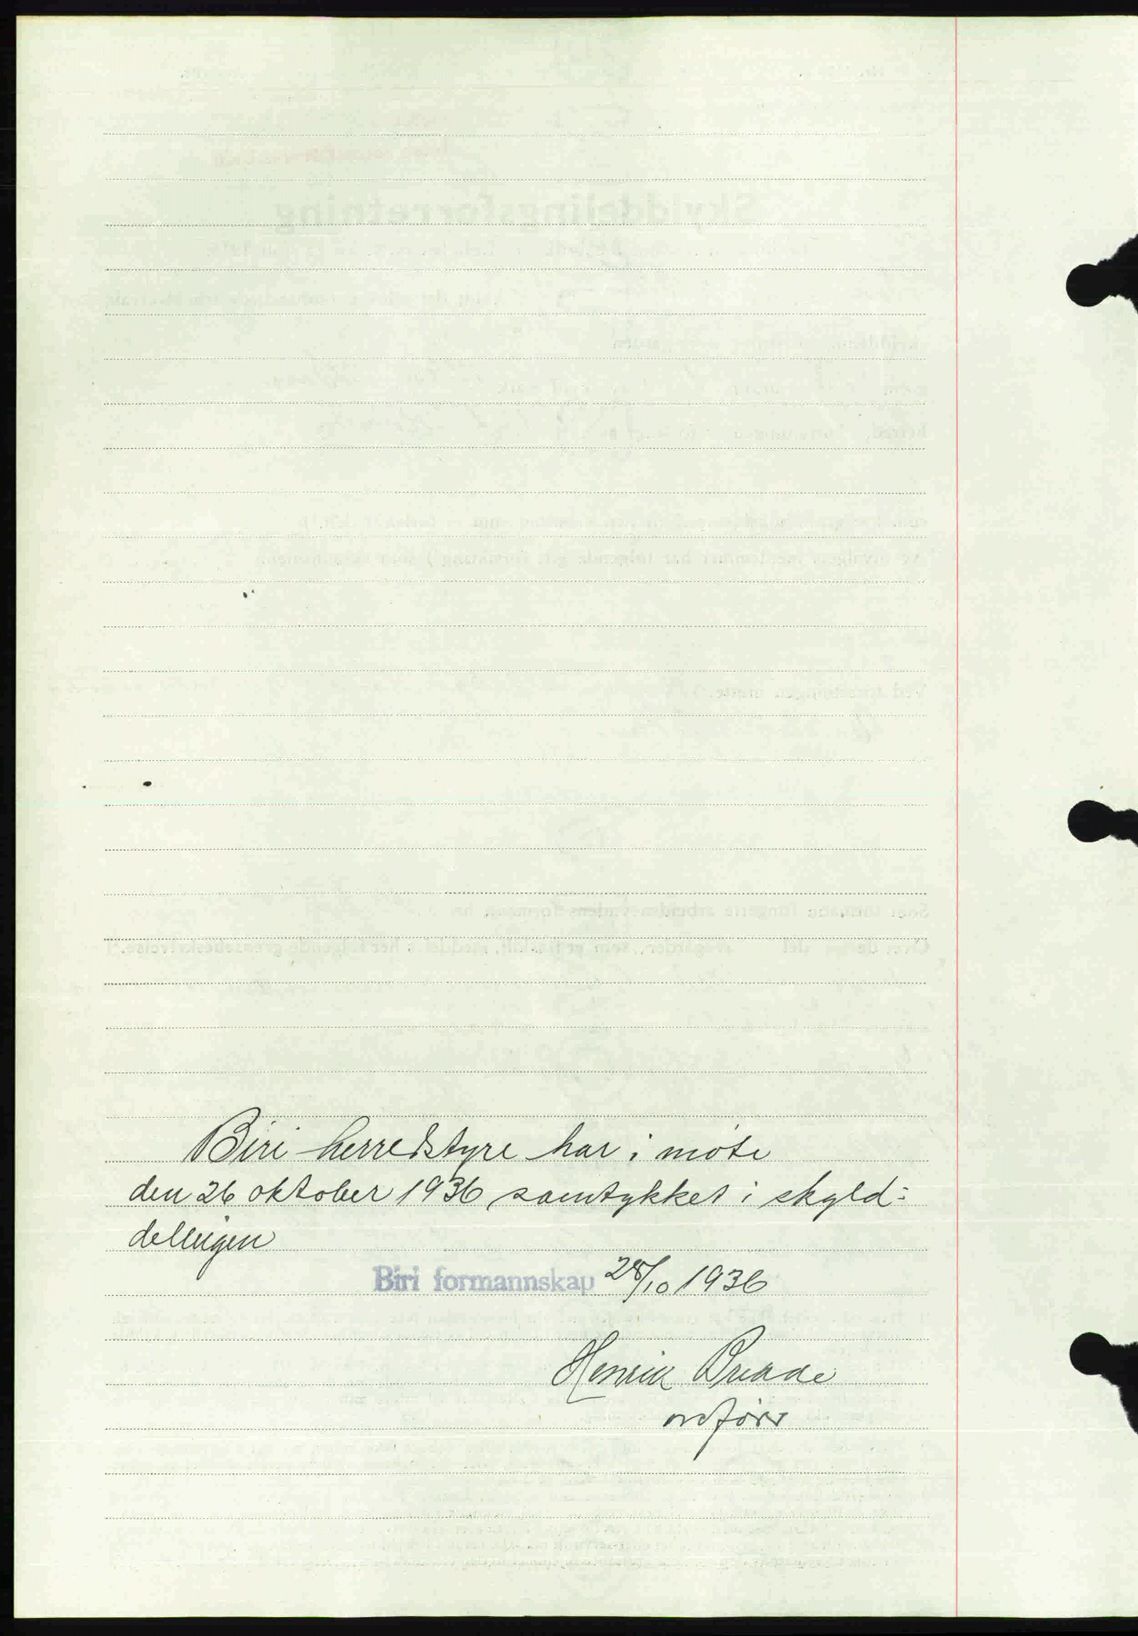 Biri herredstyre har i møte
den 26 oktober 1936 samtykket i skyld-
delingen
Biri formannskap 28/10 1936
Henrik
ordfører